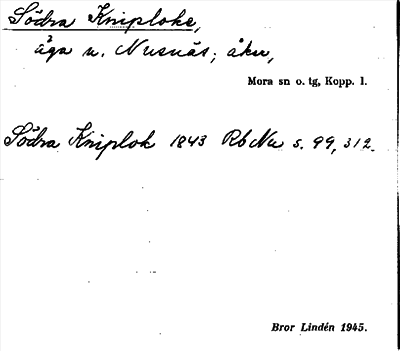 Södra Kniploke,
äga u. Nusnäs; åker,
Mora sn o. tg, Kopp. l.
Södra Kniplok 1843 Rb Nu s. 99, 312.
Bror Lindén 1945.